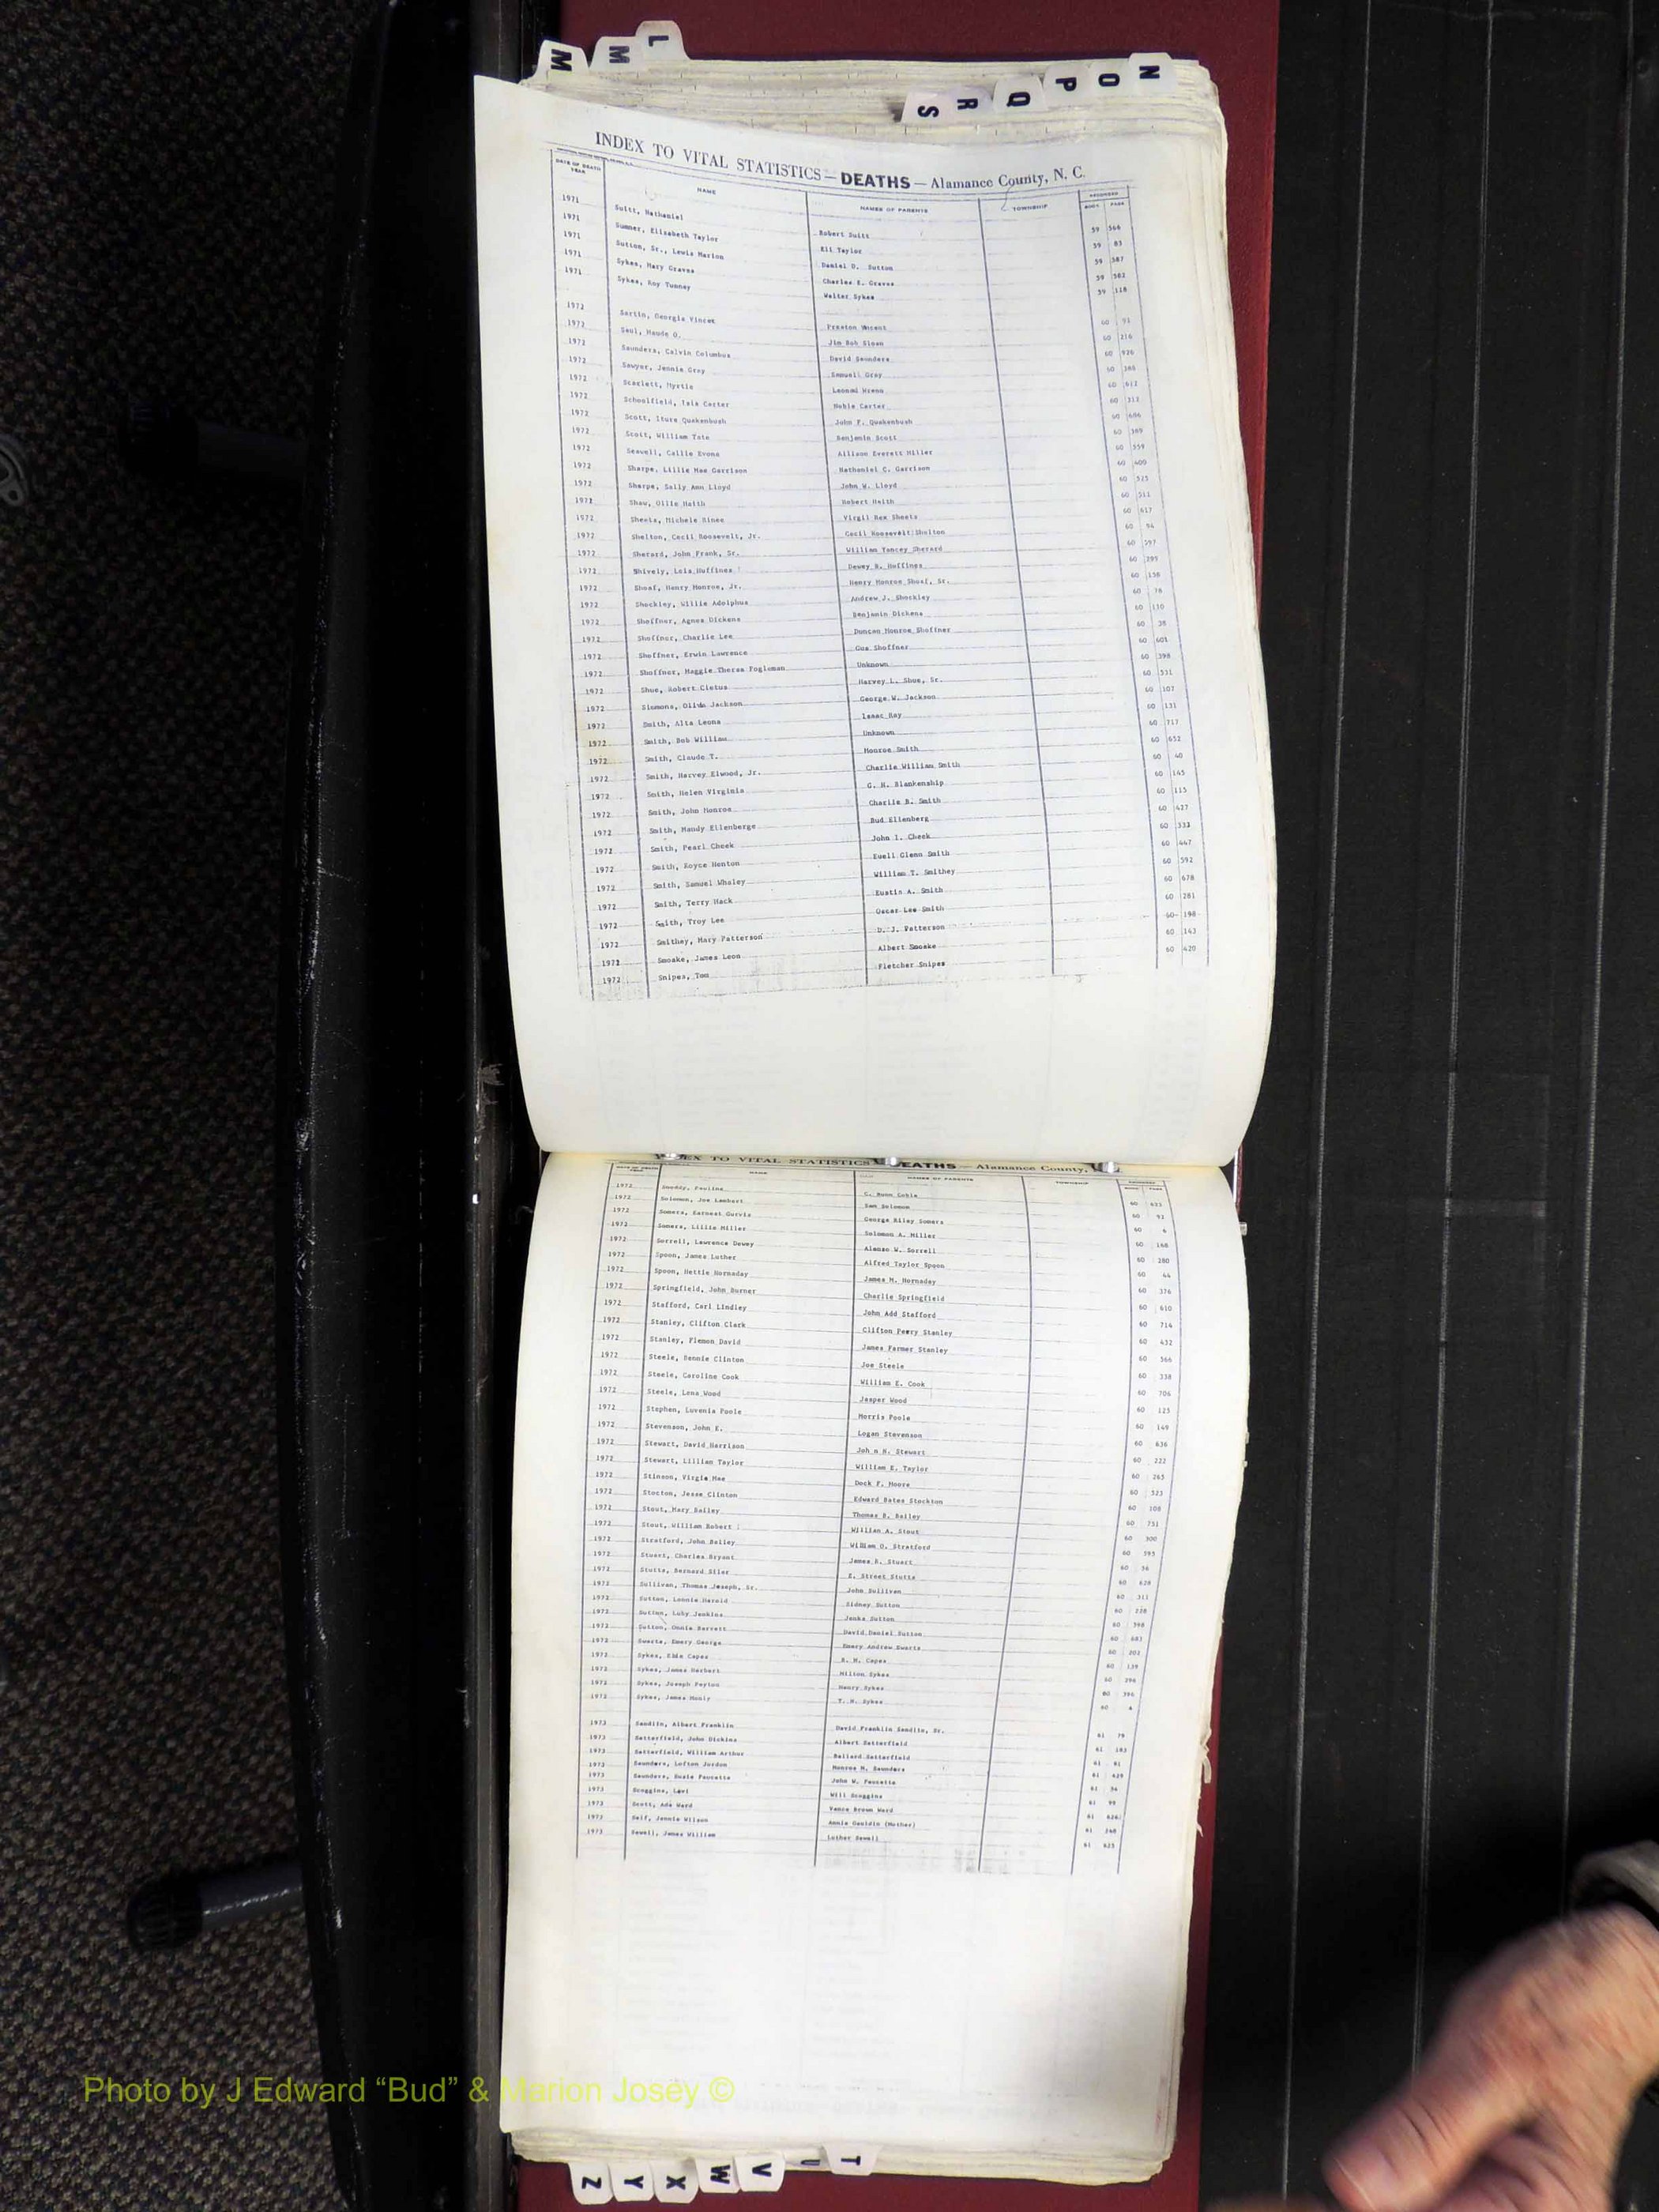 L
M
M
N
O
P
Q
R
S
INDEX TO VITAL STATISTICS — DEATHS — Alamance County, N. C.
DATE OF DEATH YEAR NAME NAMES OF PARENTS TOWNSHIP RECORDED BOOK PAGE
1971 Suitt, Nathaniel Robert Suitt 59 566
1971 Sumner, Elizabeth Taylor Eli Taylor 59 83
1971 Sutton, Sr., Lewis Marion Daniel D. Sutton 59 587
1971 Sykes, Mary Graves Charles E. Graves 59 582
1971 Sykes, Roy Tunney Walter Sykes 59 118
1972 Sartin, Georgia Vincet Preston Vincent 60
1972 Saul, Maude O. Jim Bob Sloan 60 216
1972 Saunders, Calvin Columbus David Saunders 60 926
1972 Sawyer, Jennie Gray Samuel Gray 60
1972 Scarlett, Myrtle Leonad Wrenn 60 612
1972 Schoolfield, Isis Carter Noble Carter 60 313
1972 Scott, Iture Quakenbush John F. Quakenbush 60 686
1972 Scott, William Tate Benjamin Scott 60 389
1972 Seawell, Callie Evone Allison Everett Miller 60 559
1972 Sharpe, Lillie Mae Garrison Nathaniel C. Garrison 60 400
1972 Sharpe, Sally Ann Lloyd John W. Lloyd 60 525
1972 Shaw, Ollie Haith Robert Haith 60 511
1972 Sheets, Michele Rinee Virgil Rex Sheets 60 617
1972 Shelton, Cecil Roosevelt, Jr. Cecil Roosevelt Shelton 60 94
1972 Sherard, John Frank, Sr. William Yancey Sherard 60 597
1972 Shively, Lois Huffines Dewey R. Huffines 60 299
1972 Shoaf, Henry Monroe, Jr. Henry Monroe Shoaf, Sr. 60 158
1972 Shockley, Willie Adolphus Andrew J. Shockley 60
1972 Shoffner, Agnes Dickens Benjamin Dickens 60 110
1972 Shoffner, Charlie Lee Duncan Monroe Shoffner 60
1972 Shoffner, Erwin Lawrence Gus Shoffner 60 601
1972 Shoffner, Maggie Theresa Fogleman Unknown 60 398
1972 Shue, Robert Cletus Harvey L. Shue, Sr. 60 531
1972 Simmons, Olivia Jackson George W. Jackson 60 107
1972 Smith, Alta Leona Isaac Ray 60 131
1972 Smith, Bob William Unknown 60 717
1972 Smith, Claude T. Monroe Smith 60 652
1972 Smith, Harvey Elwood, Jr. Charlie William Smith 60 40
1972 Smith, Helen Virginia G. H. Blankenship 60 145
1972 Smith, John Monroe Charlie B. Smith 60 115
1972 Smith, Mandy Ellenberge Bud Ellenberg 60 427
1972 Smith, Pearl Cheek John I. Cheek 60 333
1972 Smith, Royce Henton Euell Glenn Smith 60 447
1972 Smith, Samuel Whaley William T. Smithey 60 592
1972 Smith, Terry Mack Eustin A. Smith 60 678
1972 Smith, Troy Lee Oscar Lee Smith 60 281
1972 Smithey, Mary Patterson D. J. Patterson 60 198
1972 Smoake, James Leon Albert Smoake 60 143
1972 Snipes, Tom Fletcher Snipes 60 420
INDEX TO VITAL STATISTICS DEATHS — Alamance County,
DATE OF DEATH YEAR NAME NAMES OF PARENTS TOWNSHIP RECORDED BOOK PAGE
1972 Sneddy, Pauline C. Bunn Coble 60
1972 Solomon, Joe Lambert Sam Solomon 60 92
1972 Somers, Earnest Gurvis George Riley Somers 60
1972 Somers, Lillie Miller Solomon A. Miller 60 168
1972 Sorrell, Lawrence Dewey Alonzo W. Sorrell 60 280
1972 Spoon, James Luther Alfred Taylor Spoon 60 44
1972 Spoon, Hettie Hornaday James M. Hornaday 60 376
1972 Springfield, John Burner Charlie Springfield 60 610
1972 Stafford, Carl Lindley John Add Stafford 60 714
1972 Stanley, Clifton Clark Clifton Peery Stanley 60 432
1972 Stanley, Flemon David James Farmer Stanley 60 566
1972 Steele, Bennie Clinton Joe Steele 60 338
1972 Steele, Caroline Cook William E. Cook 60 706
1972 Steele, Lena Wood Jasper Wood 60 125
1972 Stephen, Luvenia Poole Morris Poole 60 149
1972 Stevenson, John E. Logan Stevenson 60 636
1972 Stewart, David Harrison Joh n H. Stewart 60 222
1972 Stewart, Lillian Taylor William E. Taylor 60 265
1972 Stinson, Virgie Mae Dock F. Moore 60 523
1972 Stocton, Jesse Clinton Edward Bates Stockton 60 108
1972 Stout, Mary Bailey Thomas B. Bailey 60 731
1972 Stout, William Robert William A. Stout 60 300
1972 Stratford, John Bailey William O. Stratford 60 595
1972 Stuart, Charles Bryant James R. Stuart 60 56
1972 Stutts, Bernard Siler E. Street Stutts 60 628
1972 Sullivan, Thomas Joseph, Sr. John Sullivan 60 311
1972 Sutton, Lonnie Harold Sidney Sutton 60 228
1972 Sutton, Luby Jenkins Janks Sutton 60 598
1972 Sutton, Onnie Barrett David Daniel Sutton 60 683
1972 Swarts, Emery George Emery Andrew Swarts 60 202
1972 Sykes, Elsie Capes R. M. Capes 60 139
1972 Sykes, James Herbert Milton Sykes 60 296
1972 Sykes, Joseph Peyton Henry Sykes 60 396
1972 Sykes, James Monly T. H. Sykes 60
1973 Sandlin, Albert Franklin David Franklin Sandlin, Sr. 61 79
1973 Satterfield, John Dickins Albert Satterfield 61 183
1973 Satterfield, William Arthur Ballard Satterfield 61 61
1973 Saunders, Lofton Jordon Monroe M. Saunders 61 429
1973 Saunders, Susie Faucette John W. Faucette 61 54
1973 Scoggins, Levi Will Scoggins 61 99
1973 Scott, Ada Ward Vance Brown Ward 61 626
1973 Self, Jennie Wilson Annie Gauldin (Mother) 61 248
1973 Sewell, James William Luther Sewell 61 625
Photo by J Edward “Bud” & Marion Josey ©
Z
Y
X
W
V
U
T